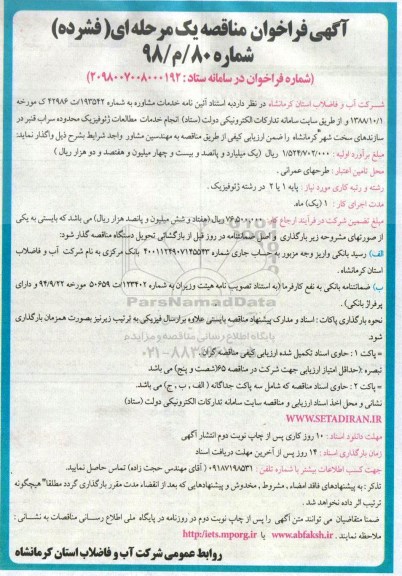 آگهی فراخوان مناقصه یک مرحله ای( فشرده)
شماره ۸۰/م/۹۸
(شماره فراخوان در سامانه ستاد : ۲۰۹۸۰۰۷۰۰۸۰۰۰۱۹۲)
شرکت آب و فاضلاب استان کرمانشاه در نظر دارد به استناد آئین نامه خدمات مشاوره به شماره ۱۹۳۵۴۲/ت ۴۲۹۸۶ ک مورخه
۱۳۸۸/۱۰/۱ و از طریق سایت سامانه تدارکات الکترونیکی دولت (ستاد) انجام خدمات مطالعات ژئوفیزیک محدوده سراب قنبر در
سازندهای سخت شهر کرمانشاه را ضمن ارزیابی کیفی از طریق مناقصه به مهندسین مشاور واجد شرایط بشرح ذیل واگذار نماید:
مبلغ برآورد اولیه : ۱/۵۲۴/۷۰۲/۰۰۰ ریال (یک میلیارد و پانصد و بیست و چهار میلیون و هفتصد و دو هزار ریال )
محل تامین اعتبار : طرحهای عمرانی .
رشته و رتبه کاری مورد نیاز : پایه ۱ یا ۲ در رشته ژئوفیزیک .
مدت اجرای کار : ۱ (یک) ماه.
مبلغ تضمین شرکت در فرآیند ارجاع کار : ۷۶/۵۰۰/۰۰۰ ریال (هفتاد و شش میلیون و پانصد هزار ریال) می باشد که بایستی به یکی
از صورتهای مشروحه زیر بارگذاری و اصل ضمانتنامه در روز قبل از بازگشائی تحویل دستگاه مناقصه گذار شود:
الف) رسید بانکی واریز وجه مزبور به حساب جاری شماره ۴۰۰۱۱۲۴۹۰۷۱۴۵۵۴۳ بانک مرکزی به نام شرکت آب و فاضلاب
استان کرمانشاه .
ب) ضمانتنامه بانکی به نفع کارفرما (به استناد تصویب نامه هیئت وزیران به شماره ۱۲۳۴۰۲/ت ۵۰۶۵۹ مورخه ۹۴/۹/۲۲ و دارای
پرفراژ بانکی) .
نحوه بارگذاری پاکات : اسناد و مدارک پیشنهاد مناقصه بایستی علاوه بر ارسال فیزیکی به ترتیب زیر نیز بصورت همزمان بارگذاری
شود.
= پاکت ۱ : حاوی اسناد تکمیل شده ارزیابی کیفی مناقصه گران.
تبصره :(حداقل امتیاز ارزیابی جهت شرکت در مناقصه ۶۵(شصت و پنج) می باشد
= پاکت ۲ : حاوی اسناد مناقصه که شامل سه پاکت جداگانه ( الف ، ب ، ج) می باشد.
نشانی و محل اخذ اسناد ارزیابی و مناقصه سایت سامانه تدارکات الکترونیکی دولت (ستاد)
WWW.SETADIRAN.IR
مهلت دانلود اسناد : ۱۰ روز کاری پس از چاپ نوبت دوم انتشار آگهی
زمان بارگذاری اسناد : ۱۴ روز پس از آخرین مهلت دریافت اسناد
جهت کسب اطلاعات بیشتر با شماره تلفن : ۰۹۱۸۷۱۹۸۵۳۱ ( آقای مهندس حجت زاده) تماس حاصل نمایید.
تذکر : به پیشنهادهای فاقد امضاء ، مشروط ، مخدوش و پیشنهادهایی که بعد از انقضاء مدت مقرر بارگذاری گردد مطلقا" هیچگونه
ترتیب اثر داده نخواهد شد .
ضمنا متقاضیان می توانند متن آگهی را پس از چاپ نوبت دوم در روزنامه در پایگاه ملی اطلاع رسانی مناقصات به نشانی :
http:/iets.mporg.ir یا www.abfaksh.ir ملاحظه نمایند .
روابط عمومی شرکت آب و فاضلاب استان کرمانشاه
ParsNamadData
پایگاه اطلاع رسانی مناقصه و مزایده